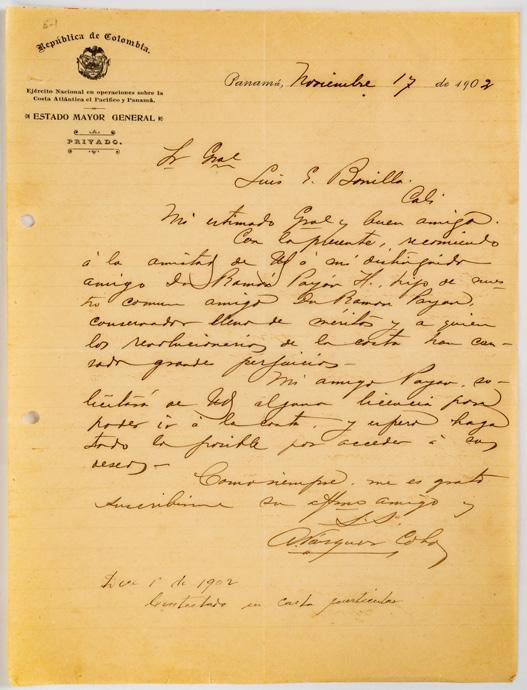 5-1
República de Colombia.
Ejército Nacional en operaciones sobre la
Costa Atlántica el Pacífico y Panamá.
ESTADO MAYOR GENERAL
PRIVADO.
Panamá, Noviembre 17 de 1902
Sr Gral
Luis E. Bonilla.
Cali
Mi estimado Gral y buen amigo.
Con la presente, recomiendo
á la amistad de Ud á mi distinguido
amigo Dn Ramón Payán H., hijo de nues-
tro comun amigo Dn Ramon Payan,
conservador lleno de méritos y a quien
los revolucionarios de la costa han cau-
sado grandes perjuicios–
Mi amigo Payan, so-
licitará de Ud alguna licencia para
poder ir á la costa, y espero haga
todo lo posible por acceder á sus
deseos–
Como siempre, me es grato
suscribirme su affmo amigo y
S.S.
A Vásquez Cobo
Dic 1º de 1902
Contestado en carta particular